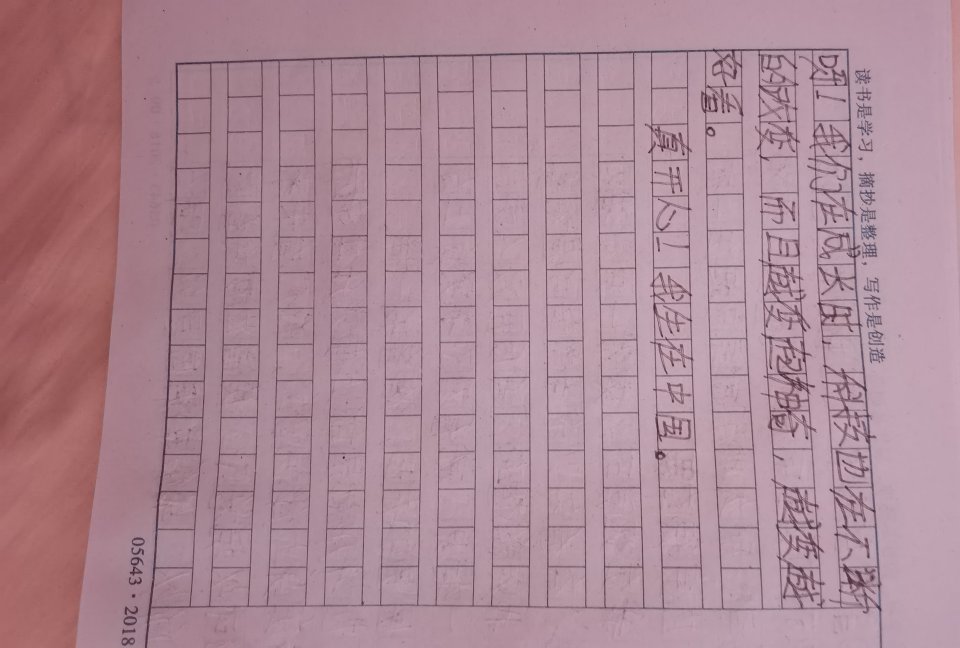 读书是学习，摘抄是整理，写作是创造
！我们在成长时，科技也在不断
的改变，而且越变奇，越变越
好看。
真开心！我生在中国。
05643·2018